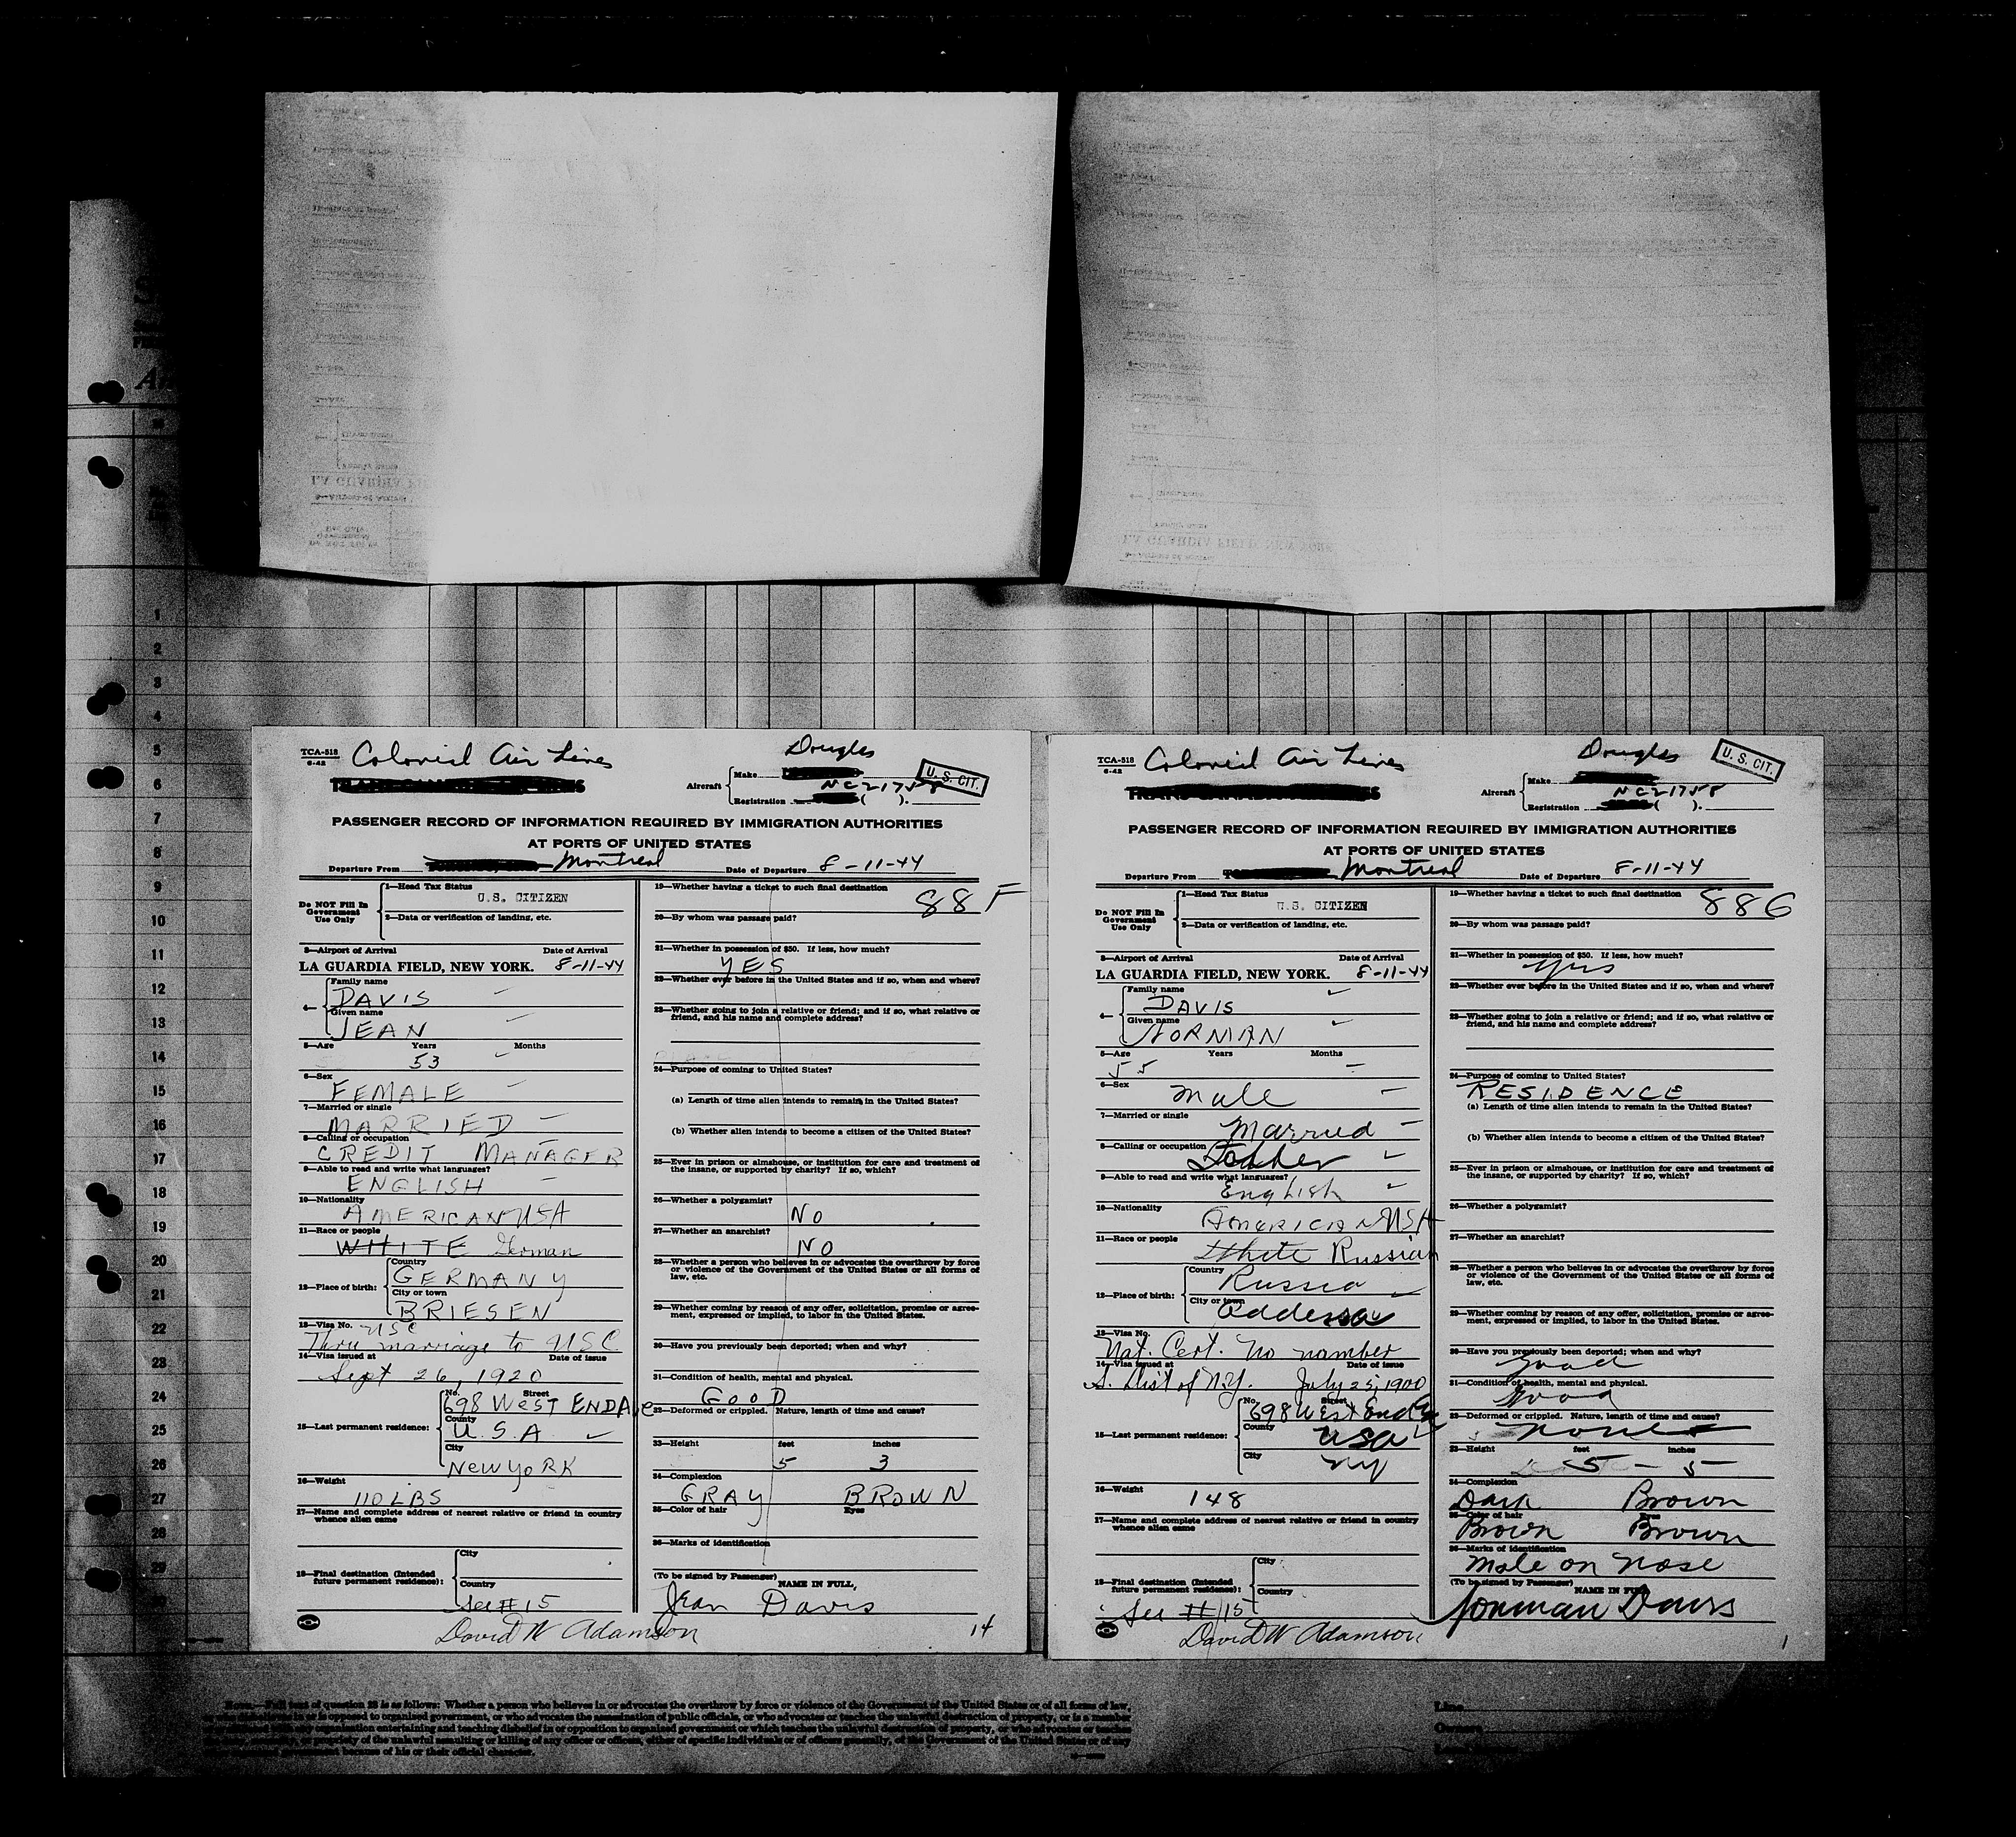 1
2
3
4
5
6
7
8
9
10
11
12
13
14
15
16
17
18
19
20
21
22
23
24
25
26
27
28
29
TCA-518
6-42
Colonial Air Lines
Douglas
Aircraft
Make
NC21758
Registration ( ).
U. S. CIT.
PASSENGER RECORD OF INFORMATION REQUIRED BY IMMIGRATION AUTHORITIES
AT PORTS OF UNITED STATES
Departure From Montreal Date of Departure 8-11-44
Do NOT Fill In
Government
Use Only
1—Head Tax Status
U.S. CITIZEN
2—Data or verification of landing, etc.
3—Airport of Arrival Date of Arrival
LA GUARDIA FIELD, NEW YORK. 8-11-44
4—
Family name
DAVIS
Given name
JEAN
5—Age Years Months
53
6—Sex
FEMALE
7—Married or single
MARRIED
8—Calling or occupation
CREDIT MANAGER
9—Able to read and write what languages?
ENGLISH
10—Nationality
AMERICAN USA
11—Race or people
WHITE German
12—Place of birth:
Country
GERMANY
City or town
BRIESEN
13—Visa No. USC
Thru marriage to USC
14—Visa issued at Date of issue
Sept 26, 1920
15—Last permanent residence:
No. Street
698 WEST END Ave
County
U.S.A
City
New YORK
16—Weight
110 LBS
17—Name and complete address of nearest relative or friend in country
whence alien came
18—Final destination (Intended
future permanent residence):
City
Country
See #15
David W Adamson
19—Whether having a ticket to such final destination
88F
20—By whom was passage paid?
21—Whether in possession of $50. If less, how much?
YES
22—Whether ever before in the United States and if so, when and where?
23—Whether going to join a relative or friend; and if so, what relative or
friend, and his name and complete address?
24—Purpose of coming to United States?
(a) Length of time alien intends to remain in the United States?
(b) Whether alien intends to become a citizen of the United States?
25—Ever in prison or almshouse, or institution for care and treatment of
the insane, or supported by charity? If so, which?
26—Whether a polygamist?
NO
27—Whether an anarchist?
NO
28—Whether a person who believes in or advocates the overthrow by force
or violence of the Government of the United States or all forms of
law, etc.
29—Whether coming by reason of any offer, solicitation, promise or agree-
ment, expressed or implied, to labor in the United States.
30—Have you previously been deported; when and why?
31—Condition of health, mental and physical.
GOOD
32—Deformed or crippled. Nature, length of time and cause?
33—Height feet inches
5 3
34—Complexion
GRAY BROWN
35—Color of hair Eyes
36—Marks of identification
(To be signed by Passenger) NAME IN FULL,
Jean Davis
14
TCA-518
6-42
Colonial Air Lines
Douglas
Aircraft
Make
NC21758
Registration ( ).
U. S. CIT.
PASSENGER RECORD OF INFORMATION REQUIRED BY IMMIGRATION AUTHORITIES
AT PORTS OF UNITED STATES
Departure From Montreal Date of Departure 8-11-44
Do NOT Fill In
Government
Use Only
1—Head Tax Status
U.S. CITIZEN
2—Data or verification of landing, etc.
3—Airport of Arrival Date of Arrival
LA GUARDIA FIELD, NEW YORK. 8-11-44
4—
Family name
DAVIS
Given name
NORMAN
5—Age Years Months
55
6—Sex
Male
7—Married or single
Married
8—Calling or occupation
9—Able to read and write what languages?
English
10—Nationality
AMERICIAN USA
11—Race or people
White Russian
12—Place of birth:
Country
Russia
City or town
Oddessa
13—Visa No.
Nat. Cert. No number
14—Visa issued at Date of issue
S. Dist of N.Y. July 25, 1900
15—Last permanent residence:
No. Street
698 West End Ave
County
USA
City
NY
16—Weight
148
17—Name and complete address of nearest relative or friend in country
whence alien came
18—Final destination (Intended
future permanent residence):
City
Country
See #15
David W Adamson
19—Whether having a ticket to such final destination
88G
20—By whom was passage paid?
21—Whether in possession of $50. If less, how much?
yes
22—Whether ever before in the United States and if so, when and where?
23—Whether going to join a relative or friend; and if so, what relative or
friend, and his name and complete address?
24—Purpose of coming to United States?
RESIDENCE
(a) Length of time alien intends to remain in the United States?
(b) Whether alien intends to become a citizen of the United States?
25—Ever in prison or almshouse, or institution for care and treatment of
the insane, or supported by charity? If so, which?
26—Whether a polygamist?
27—Whether an anarchist?
28—Whether a person who believes in or advocates the overthrow by force
or violence of the Government of the United States or all forms of
law, etc.
29—Whether coming by reason of any offer, solicitation, promise or agree-
ment, expressed or implied, to labor in the United States.
30—Have you previously been deported; when and why?
good
31—Condition of health, mental and physical.
good
32—Deformed or crippled. Nature, length of time and cause?
none
33—Height feet inches
5 - 5
34—Complexion
Dark Brown
35—Color of hair Eyes
Brown Brown
36—Marks of identification
Mole on nose
(To be signed by Passenger) NAME IN FULL,
Norman Davis
1
Note.—Full text of question 28 is as follows: Whether a person who believes in or advocates the overthrow by force or violence of the Government of the United States or of all forms of law,
or is opposed to organized government, or who advocates the assassination of public officials, or who advocates or teaches the unlawful destruction of property, or is a member
any organization entertaining and teaching disbelief in or opposition to organized government or which teaches the unlawful destruction of property, or who advocates or teaches
or propriety of the unlawful assaulting or killing of any officer or officers, either of specific individuals or of officers generally, of the Government of the United States or of any
government because of his or their official character.
Line
Owners